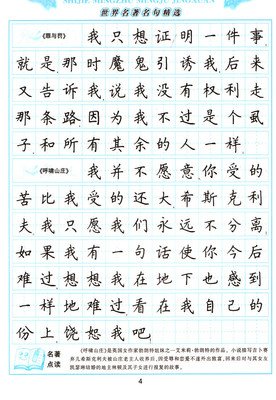 SHIJIE MINGZHU MINGJU JINGXUAN
世界名著名句精选
《罪与罚》 我只想证明一件事
就是那时魔鬼引诱我后来
又告诉我说我没有权利走
那条路因为我不过是个虱
子和所有其余的人一样
《呼啸山庄》 我并不愿意你受的
苦比我受的还大希斯克利
夫我只愿我们永远不分离
如果我有一句话使你今后
难过想想我在地下也感到
一样地难过看在我自己的
份上饶恕我吧
名著
点读
《呼啸山庄》是英国女作家勃朗特姐妹之一艾米莉·勃朗特的作品。小说描写吉卜赛
弃儿希斯克利夫被山庄老主人收养后，因受辱和恋爱不遂外出致富，回来后对与其女友
凯瑟琳结婚的地主林顿及其子女进行报复的故事。
4